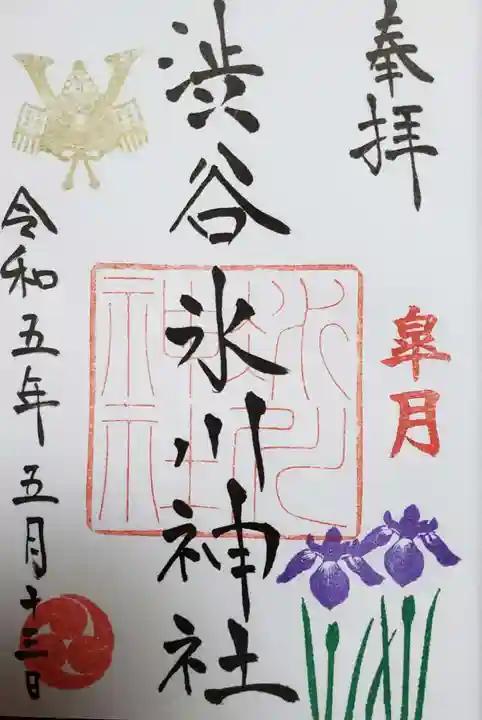 奉拝
皐月
渋谷氷川神社
令和五年五月十三日